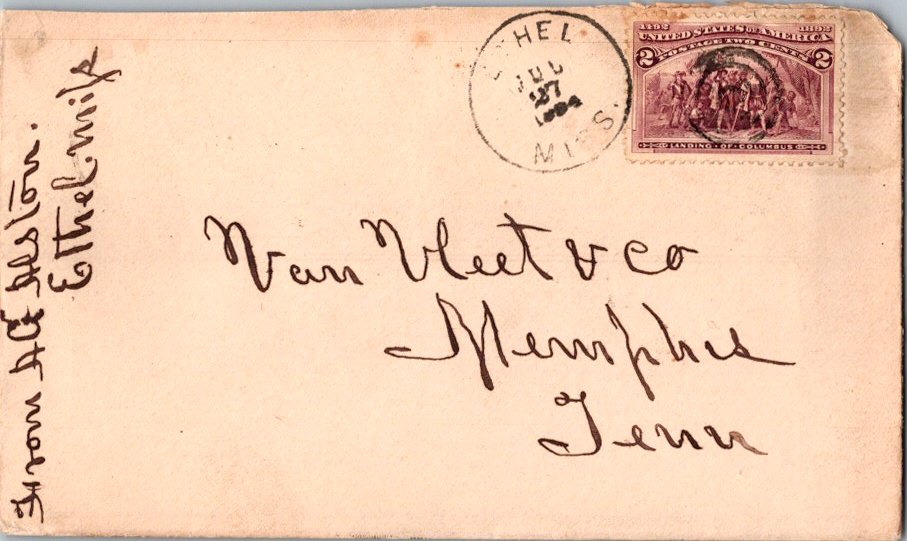 From A A Alston.
Ethel Miss
ETHEL
JUL
27
1894
MISS.
1492 1892
UNITED STATES OF AMERICA
POSTAGE TWO CENTS
2 2
LANDING · OF · COLUMBUS
Van Vleet & Co
Memphis
Tenn